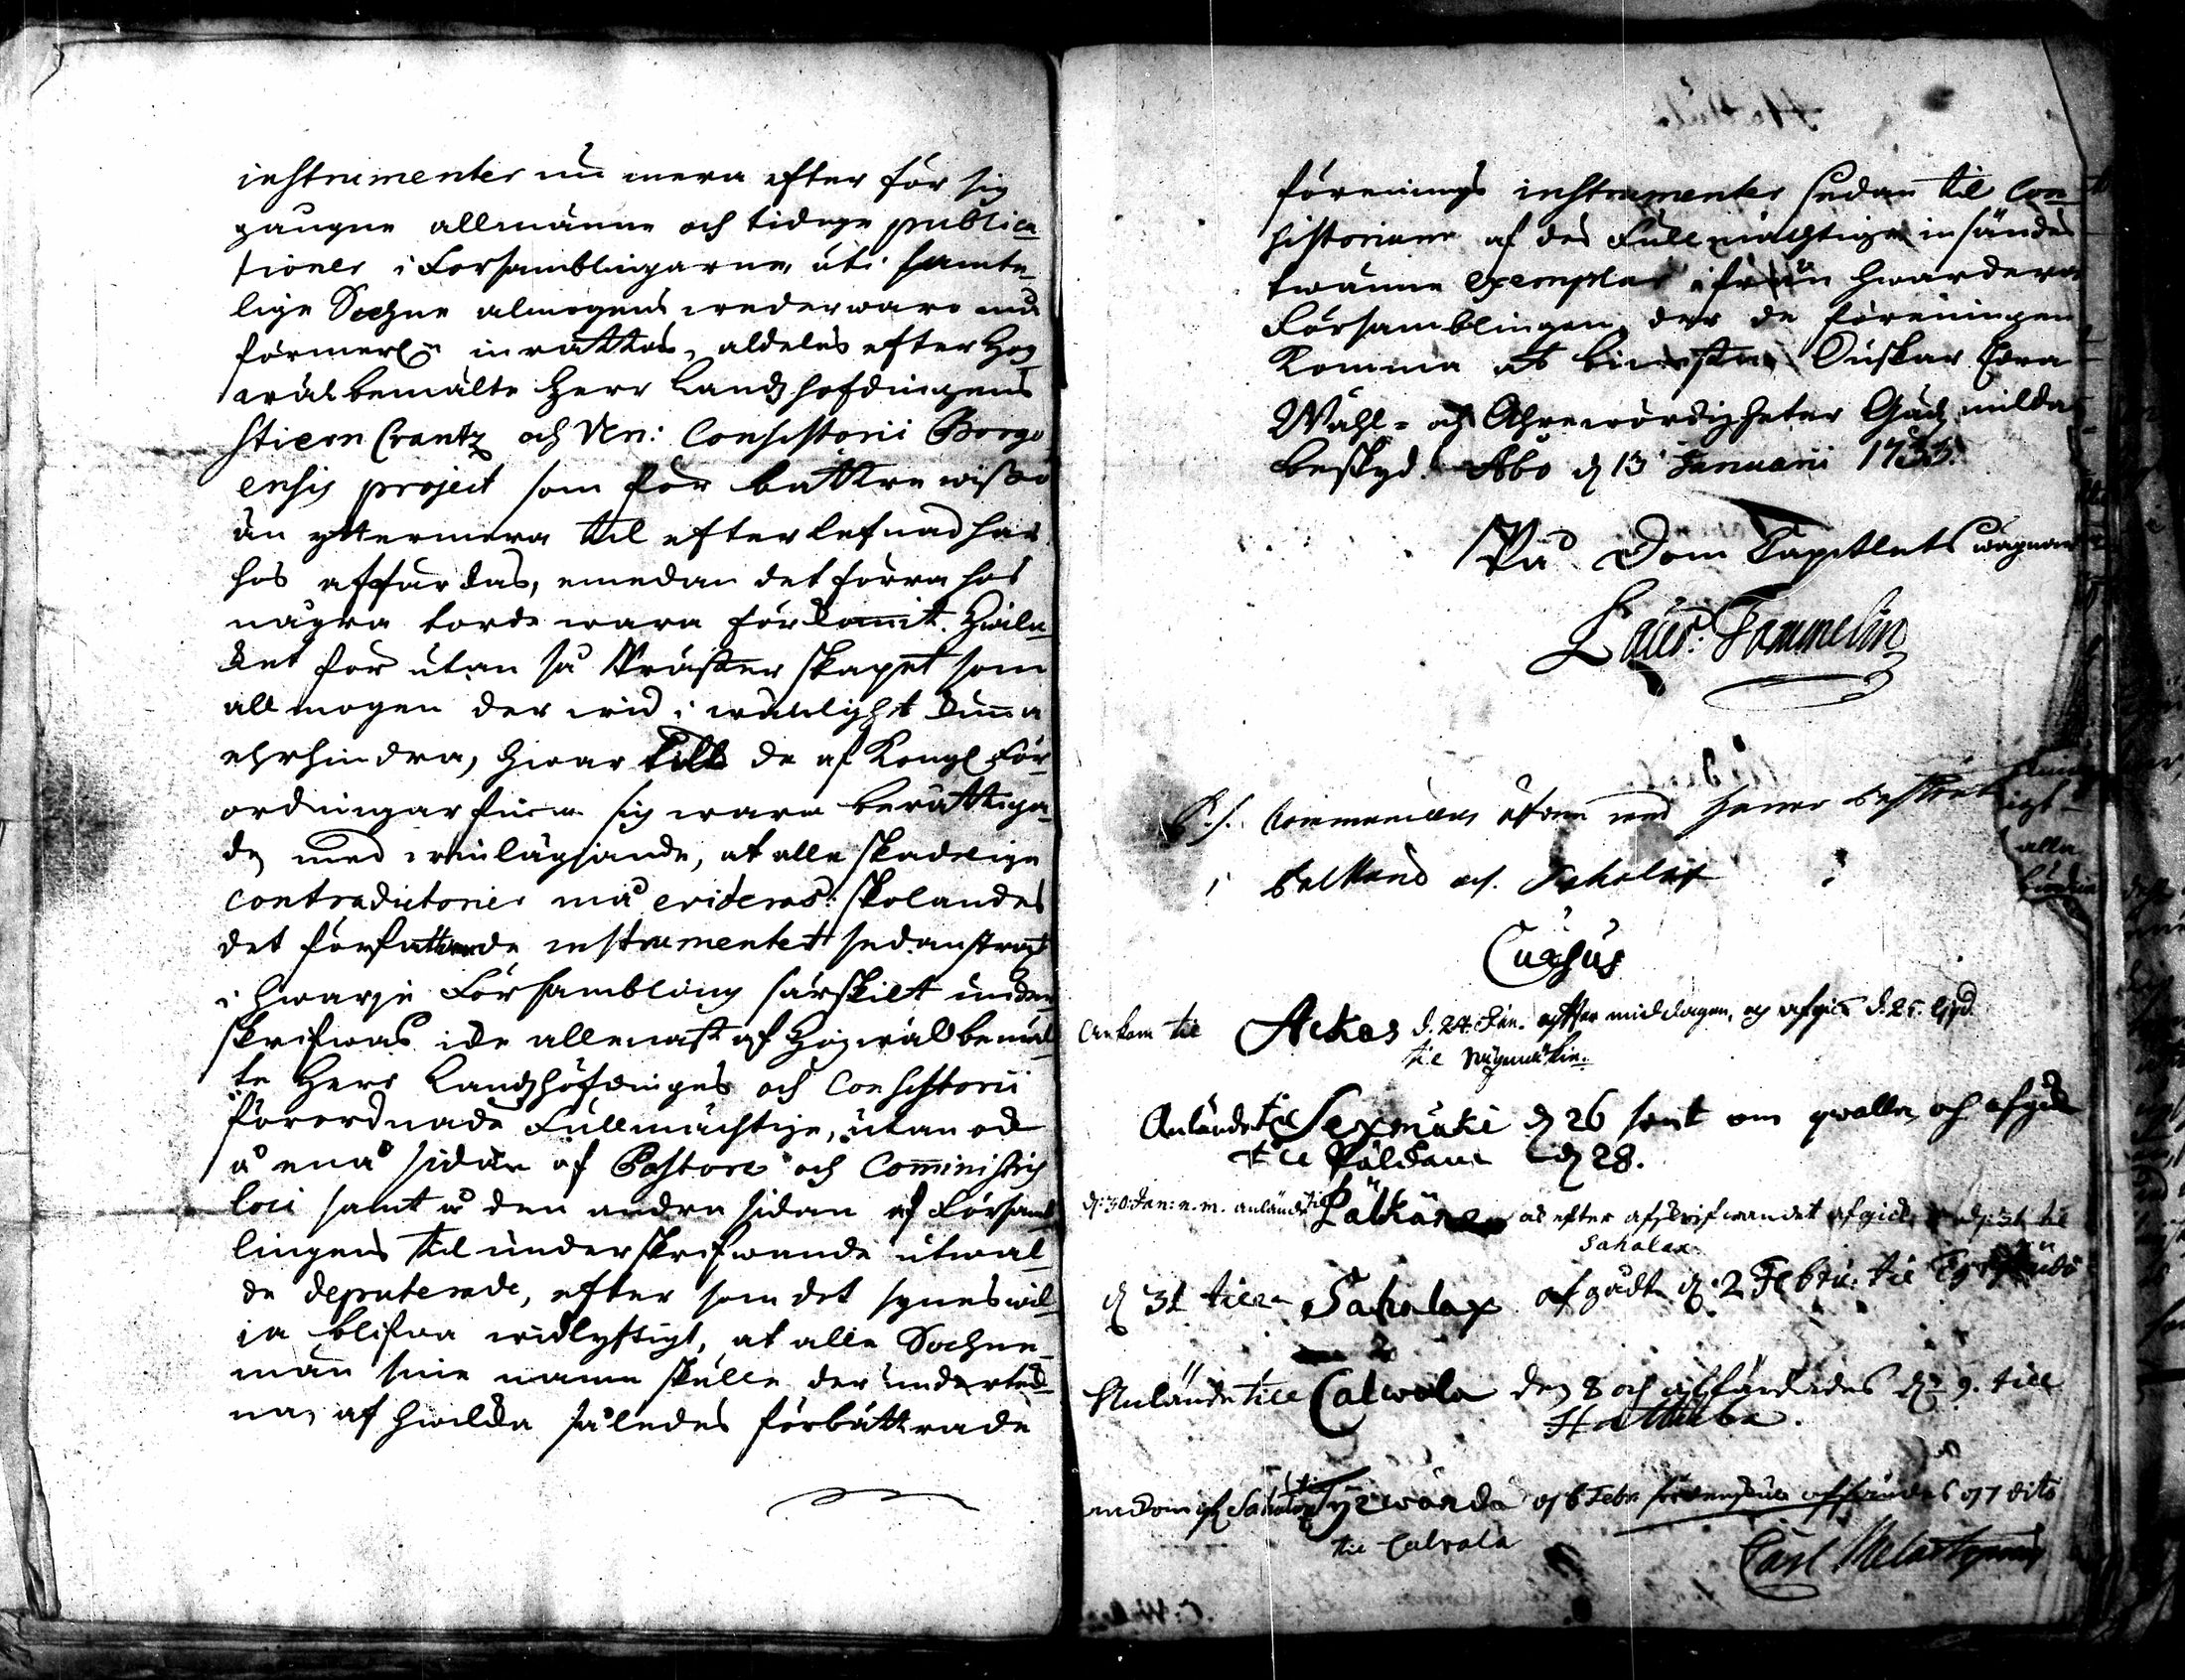 instrumenter nu mera efter för sig
gaugne allmänne och tidige publica
tioner i Forsamblingarne, uti samte¬
lige Sochne almogens nederwaro må
förmerl:n inrättas, aldeles efter Hög
wälbemälte Herr Landzhöfdingens
Stiern Crantz och Ven: Consistorii Borgo
ensis project som för bättre wisso
än yttermera til efterlefnad här
hos affärdas, emedan det förra hos
några torde wara förkommit. Hwila
ket för utan så Prästerskapet som
allmogen der wid i wänlighet kunna
ehrhindra, hwar till de af Kongl För
ordningar sig wara berättiga
de med inläggiande, at alla skadelige
contradictorier må evideras: skolandes
det författande instrumentet sedan strax
i hwarje Försambling särskilt under
skrifwas icke allenast af Högwälbemäl
te Herr Landzhöfdinges och Consistorii
förordnade Fullmächtige, utan ock
å ena sidan af Pastore och Comministris
loci samt å den andra sidan af Församb
lingens til underskrifwande utwal¬
de deputerade, efter som det synes wil
ja blifwa widlyftigt, at alla Sochne¬
män sine namn skulle der underteck¬
na, af hwilcka således förbättrade
förenings instrumenter sedan til Con
sistorium af des Fullmächtige insändes
twänne exemplar ifrån hwardera
Församblingen, der de föreningen
komma at Önskar Edra
Wähl- och Ährewördigheter Gudz milda
beskyd. Åbo d 13 Januarii 1733.
På Dom Capitlets wägnar
Laur: Tammelin
P.S. Communiceras
i och Sahalax
Cursus
Ankom til Ackas d. 24. Jan. efter middagen, och afgick d. 25. ejusd.
til
Anlände til Sexmäki d 26 sent om qwällen och afgick
till Pälckäne d 28.
d: 30 Jan: e. m. anländt til Pälkäne och efter afskrifwandet afgick d: 31 til
Sahalax
d 31 till Sahalax afgådt d: 2 Febru: til
Anlände till Calwola den 8 och affärdades d: 9. till
Hattula.
ankom ifr Sahalax til Tyrwändö d 6 Febr affändes d 7 dito
til Calvola
Carl Melartopæus